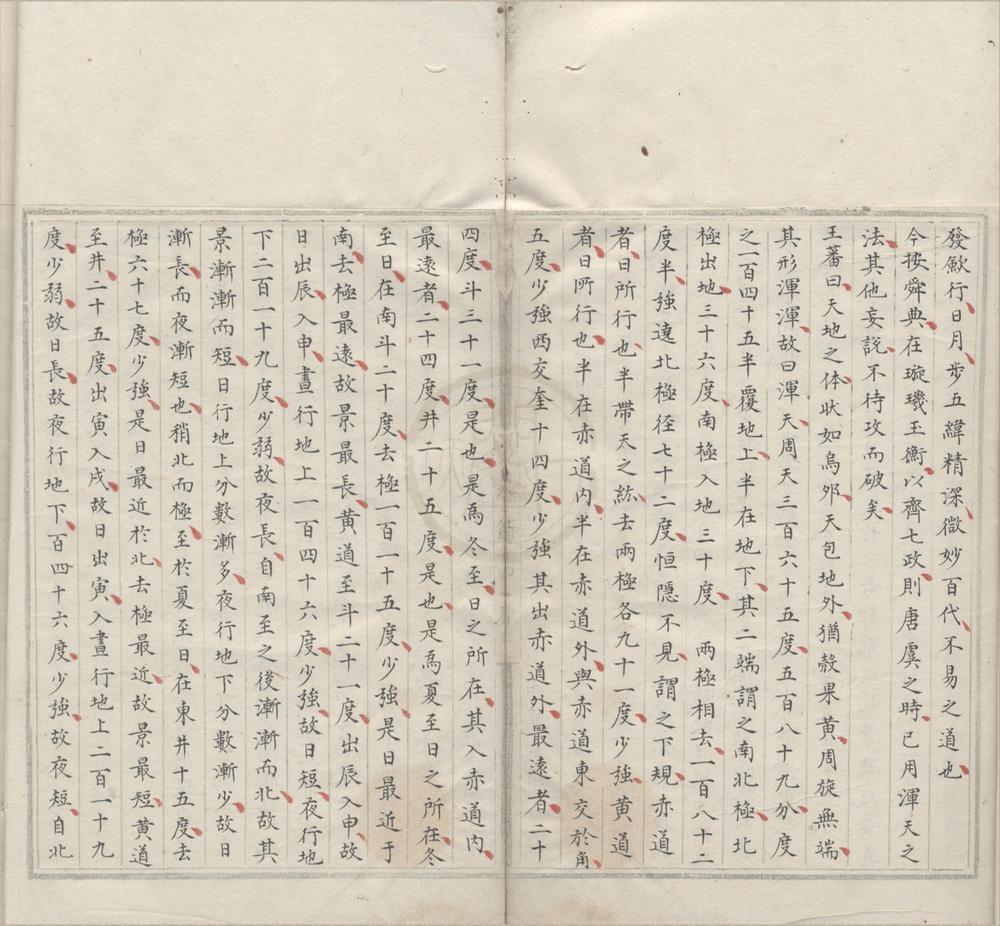 發歛行日月步五緯精深微妙百代不易之道也
今按舜典在璇璣玉衡以齊七政則唐虞之時已用渾天之
法其他妄說不待攻而破矣
王蕃曰天地之体狀如鳥卵天包地外猶殼果黃周旋無端
其形渾渾故曰渾天周天三百六十五度五百八十九分度
之一百四十五半覆地上半在地下其二端謂之南北極北
極出地三十六度南極入地三十度 兩極相去一百八十二
度半強遶北極径七十二度恒隱不見謂之下規赤道
者日所行也半帶天之紘去兩極各九十一度少強黃道
者日所行也半在赤道內半在赤道外與赤道東交於角
五度少強西交奎十四度少強其出赤道外最遠者二十
四度斗三十一度是也是爲冬至日之所在其入赤道內
最遠者二十四度井二十五度是也是爲夏至日之所在冬
至日在南斗二十度去極一百一十五度少強是日最近于
南去極最遠故景最長黃道至斗二十一度出辰入申故
日出辰入申晝行地上一百四十六度少強故日短夜行地
下二百一十九度少弱故夜長自南至之後漸漸而北故其
景漸漸而短日行地上分數漸多夜行地下分數漸少故日
漸長而夜漸短也稍北而極至於夏至日在東井十五度去
極六十七度少強是日最近於北去極最近故景最短黃道
至井二十五度出寅入戌故日出寅入晝行地上二百一十九
度少弱故日長故夜行地下百四十六度少強故夜短自北